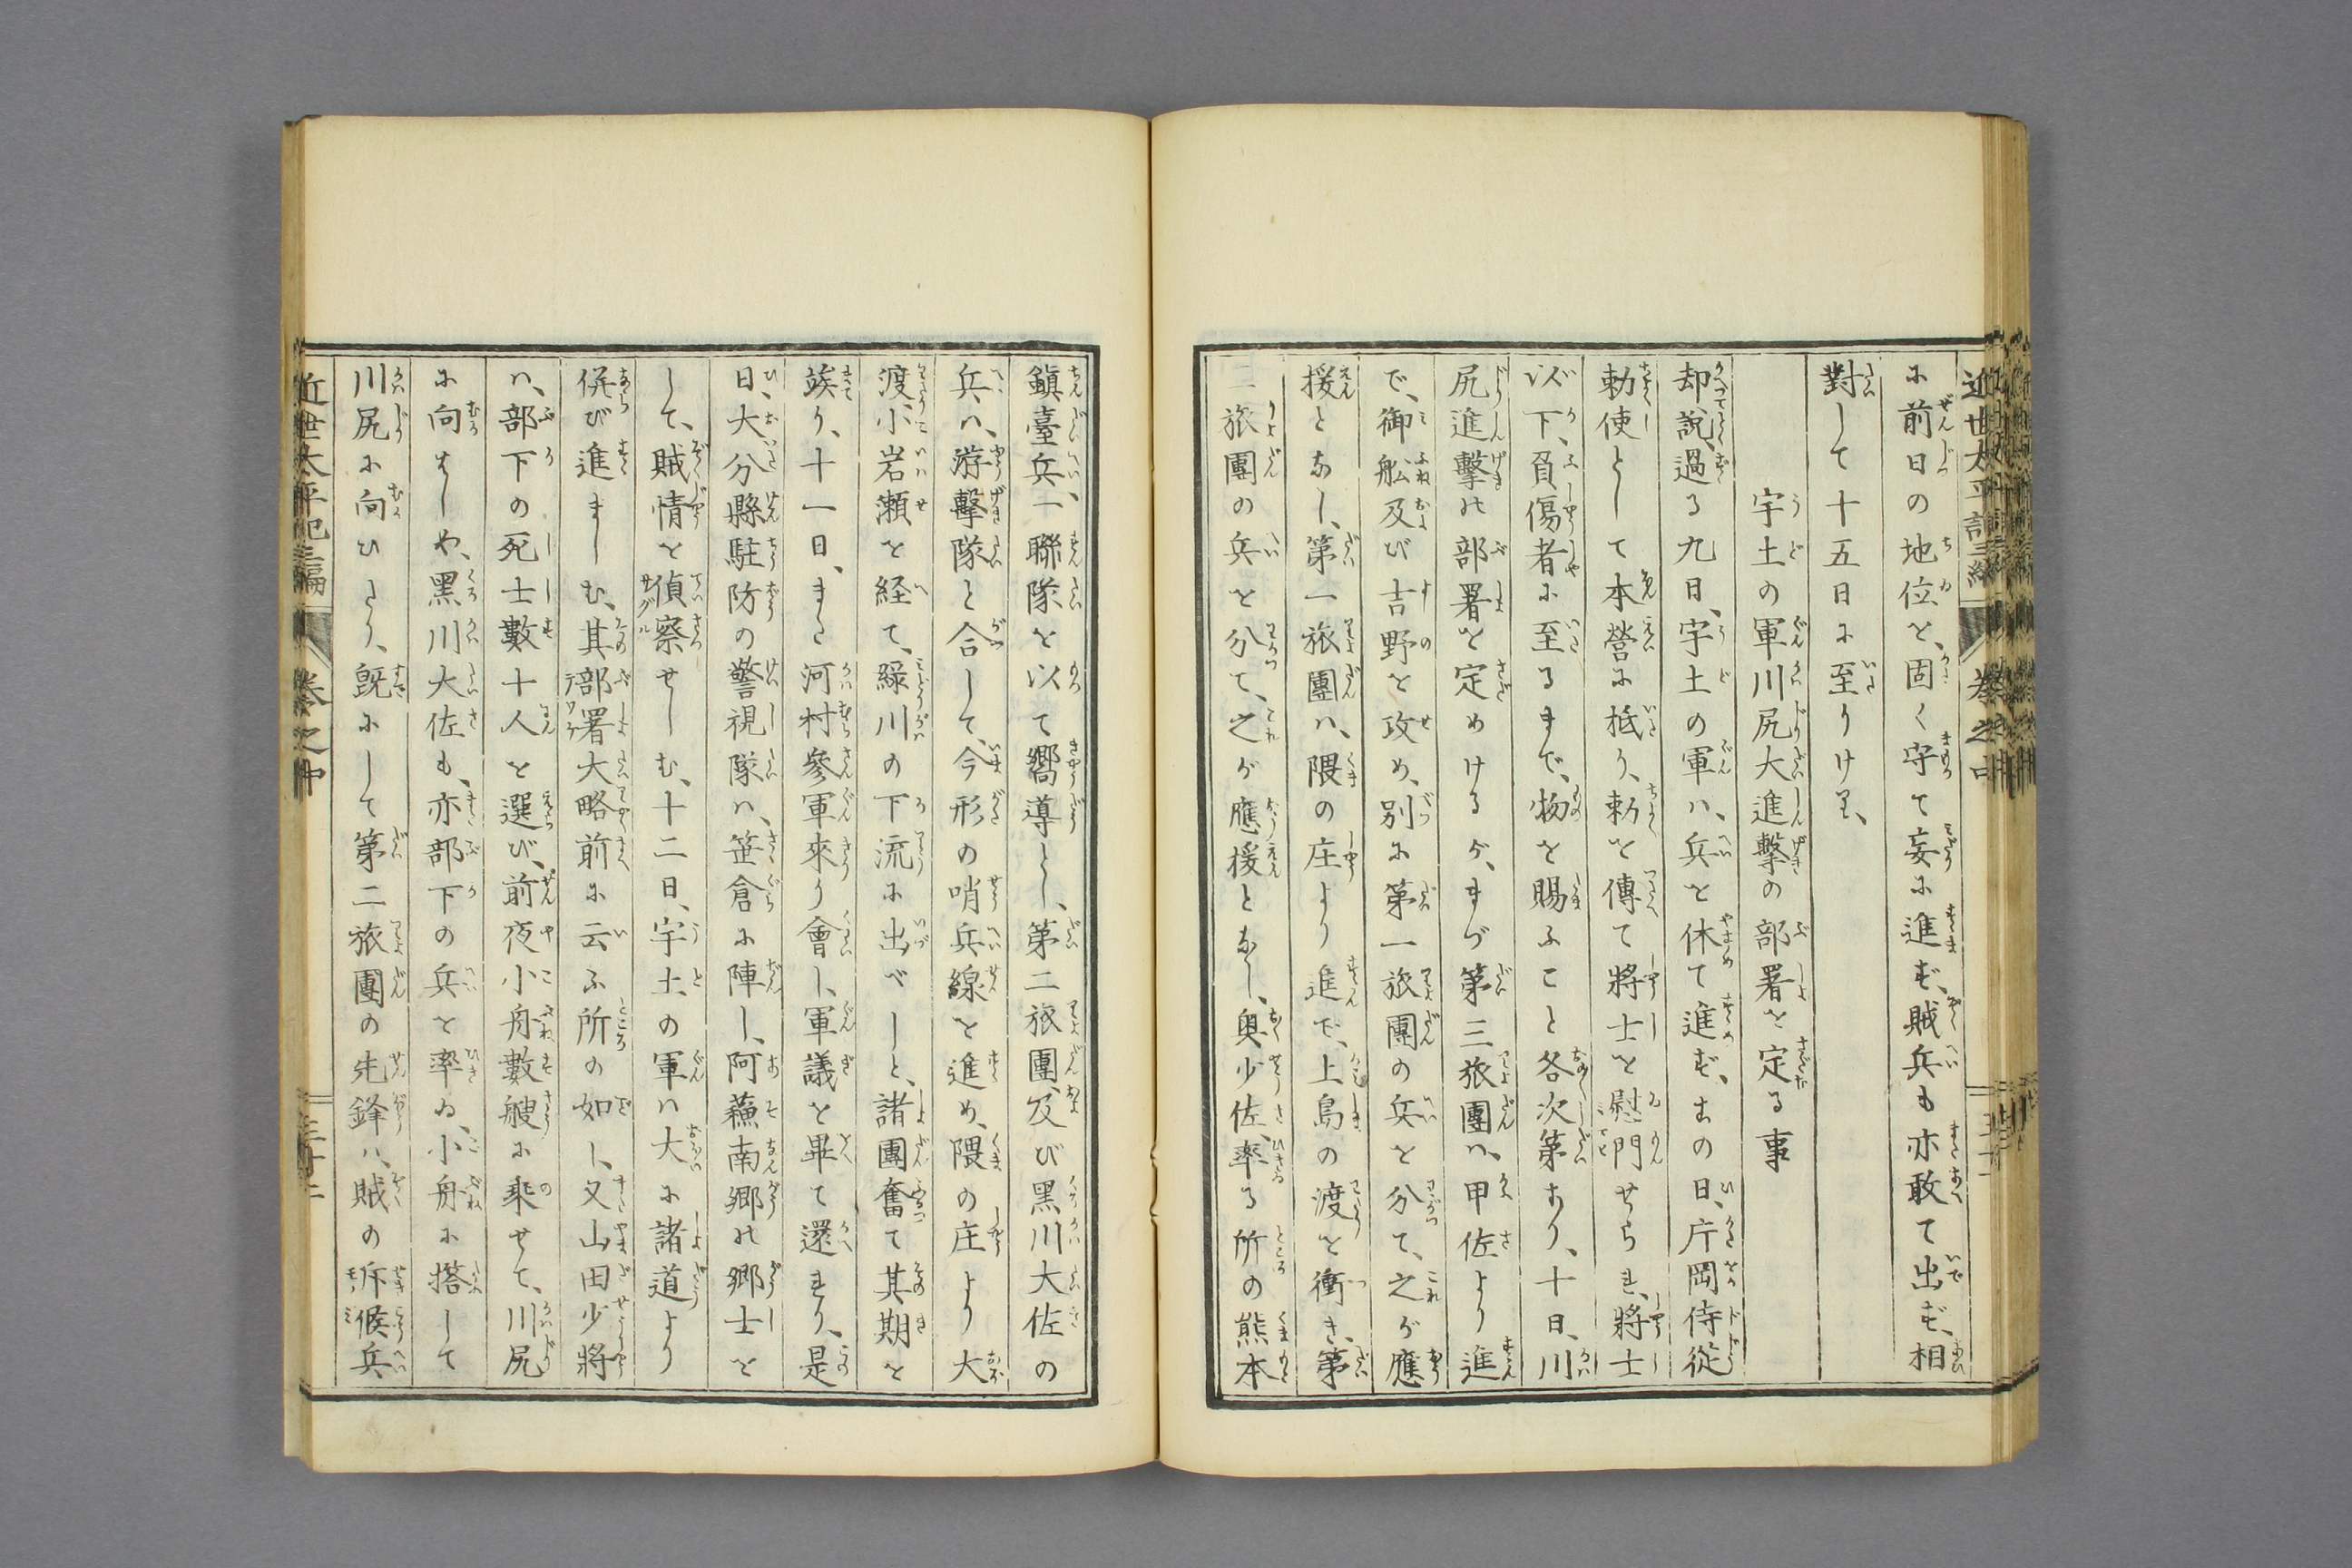 に前日の地位を、固く守て妄に進まず、賊兵も亦敢て出ず、相
對して十五日に至りけり、
宇土の軍川尻大進撃の部署を定る事
却說、過る九日、宇土の軍ハ、兵を休て進まず、この日、片岡侍從
勅使として本營に抵り、勅を傳て將士を慰問せらる、將士
以下、負傷者に至るまで、物を賜ふこと各次第あり、十日、川
尻進擊の部署を定めけるが、まづ第三旅團ハ、甲佐より進
で、御舩及び吉野を攻め、別に第一旅團の兵を分て、之が應
援となし、第一旅團ハ、隈の庄より進で、上島の渡を衝き、第
二旅團の兵を分て、之が應援となし、奥少佐、率る所の熊本
鎭臺兵一聯隊を以て嚮導とし、第二旅團、及び黒川大佐の
兵ハ、游擊隊と合して、今形の哨兵線を進め、隈の庄より大
渡、小岩瀬を経て、緑川の下流に出べしと、諸團奮て其期を
竢り、十一日、また河村參軍來り會し、軍議を畢て還れり、是
日、大分縣駐防の警視隊ハ、笹倉に陣し、阿蘓南郷の郷士を
して、賊情を偵察せしむ、十二日、宇土の軍ハ大に諸道より
併び進ましむ、其部署大略前に云ふ所の如し、又山田少將
ハ、部下の死士數十人を選び、前夜小舟數艘に乘せて、川尻
に向はしめ、黒川大佐も、亦部下の兵を率ゐ、小舟に搭して
川尻に向ひたり、既にして第二旅團の先鋒ハ、賊の斥候兵
近世太平記三編 巻之中